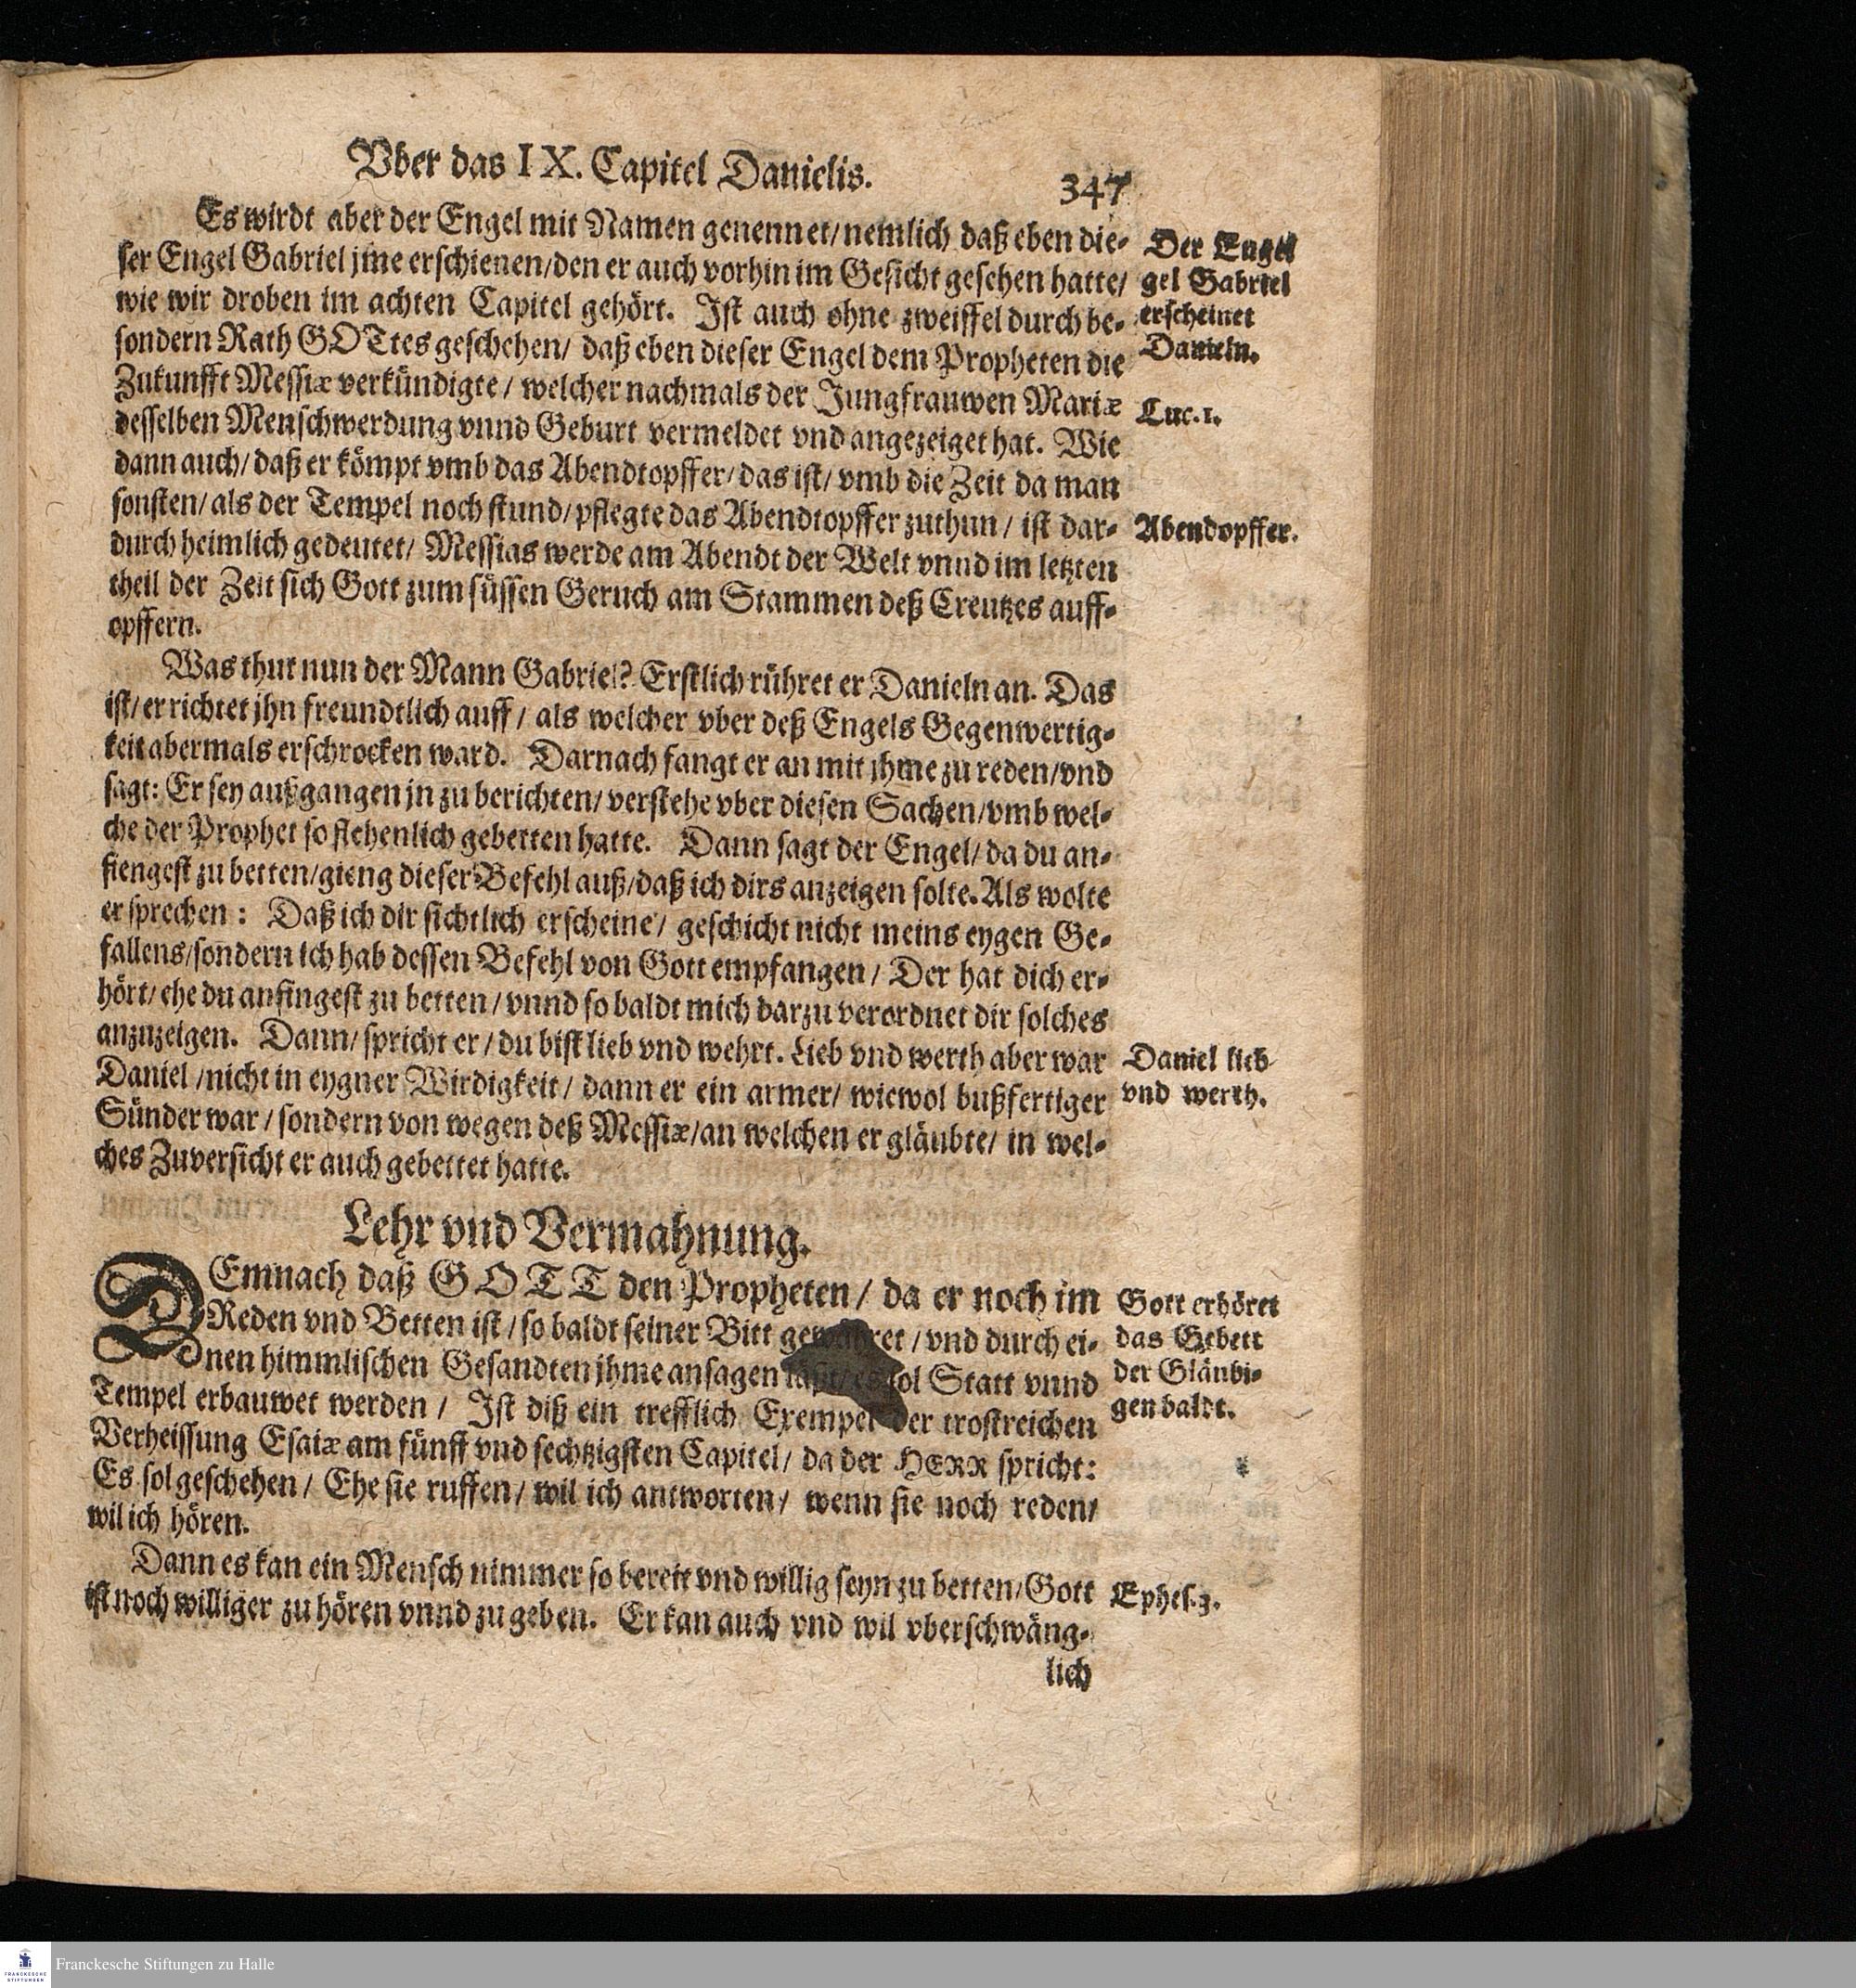 Vber das IX. Capitel Danielis.
347
Es wirdt aber der Engel mit Namen genennet/ nemlich daß eben die-
ser Engel Gabriel jme erschienen/ den er auch vorhin im Gesicht gesehen hatte/
wie wir droben im achten Capitel gehört. Ist auch ohne zweiffel durch be-
sondern Rath GOTtes geschehen/ daß eben dieser Engel dem Propheten die
Zukunfft Messiæ verkündigte/ welcher nachmals der Jungfrauwen Mariæ
desselben Menschwerdung vnnd Geburt vermeldet vnd angezeiget hat. Wie
dann auch/ daß er kömpt vmb das Abendtopffer/ das ist/ vmb die Zeit da man
sonsten/ als der Tempel noch stund/ pflegte das Abendtopffer zuthun/ ist dar-
durch heimlich gedeutet/ Messias werde am Abendt der Welt vnnd im letzten
theil der Zeit sich Gott zum süssen Geruch am Stammen deß Creutzes auff-
opffern.
Der Engel
gel Gabriel
erscheinet
Danieln.
Luc. 1.
Abendopffer.
Was thut nun der Mann Gabriel? Erstlich rühret er Danieln an. Das
ist/ er richtet jhn freundtlich auff/ als welcher vber deß Engels Gegenwertig-
keit abermals erschrocken ward. Darnach fangt er an mit jhme zu reden/ vnd
sagt: Er sey außgangen jn zu berichten/ verstehe vber diesen Sachen/ vmb wel-
che der Prophet so flehenlich gebetten hatte. Dann sagt der Engel/ da du an-
fiengest zu betten/ gieng dieser Befehl auß/ daß ich dirs anzeigen solte. Als wolte
er sprechen: Daß ich dir sichtlich erscheine/ geschicht nicht meins eygen Ge-
fallens/ sondern ich hab dessen Befehl von Gott empfangen/ Der hat dich er-
hört/ ehe du anfingest zu betten/ vnnd so baldt mich darzu verordnet dir solches
anzuzeigen. Dann/ spricht er/ du bist lieb vnd wehrt. Lieb vnd werth aber war
Daniel/ nicht in eygner Wirdigkeit/ dann er ein armer/ wiewol bußfertiger
Sünder war/ sondern von wegen deß Messiæ/ an welchen er gläubte/ in wel-
ches Zuversicht er auch gebettet hatte.
Daniel lieb
vnd werth.
Lehr vnd Vermahnung.
DEmnach daß GOTT den Propheten/ da er noch im
Reden vnd Betten ist/ so baldt seiner Bitt gewehret/ vnd durch ei-
nen himmlischen Gesandten jhme ansagen läßt/ es sol Statt vnnd
Tempel erbauwet werden/ Ist diß ein trefflich Exempel der trostreichen
Verheissung Esaiæ am fünff vnd sechtzigsten Capitel/ da der HERR spricht:
Es sol geschehen/ Ehe sie ruffen/ wil ich antworten/ wenn sie noch reden/
wil ich hören.
Gott erhöret
das Gebett
der Gläubi-
gen baldt.
Dann es kan ein Mensch nimmer so bereit vnd willig seyn zu betten/ Gott
ist noch williger zu hören vnnd zu geben. Er kan auch vnd wil vberschwäng-
lich
Ephes. 3.
Franckesche Stiftungen zu Halle
FRANCKESCHE
STIFTUNGEN